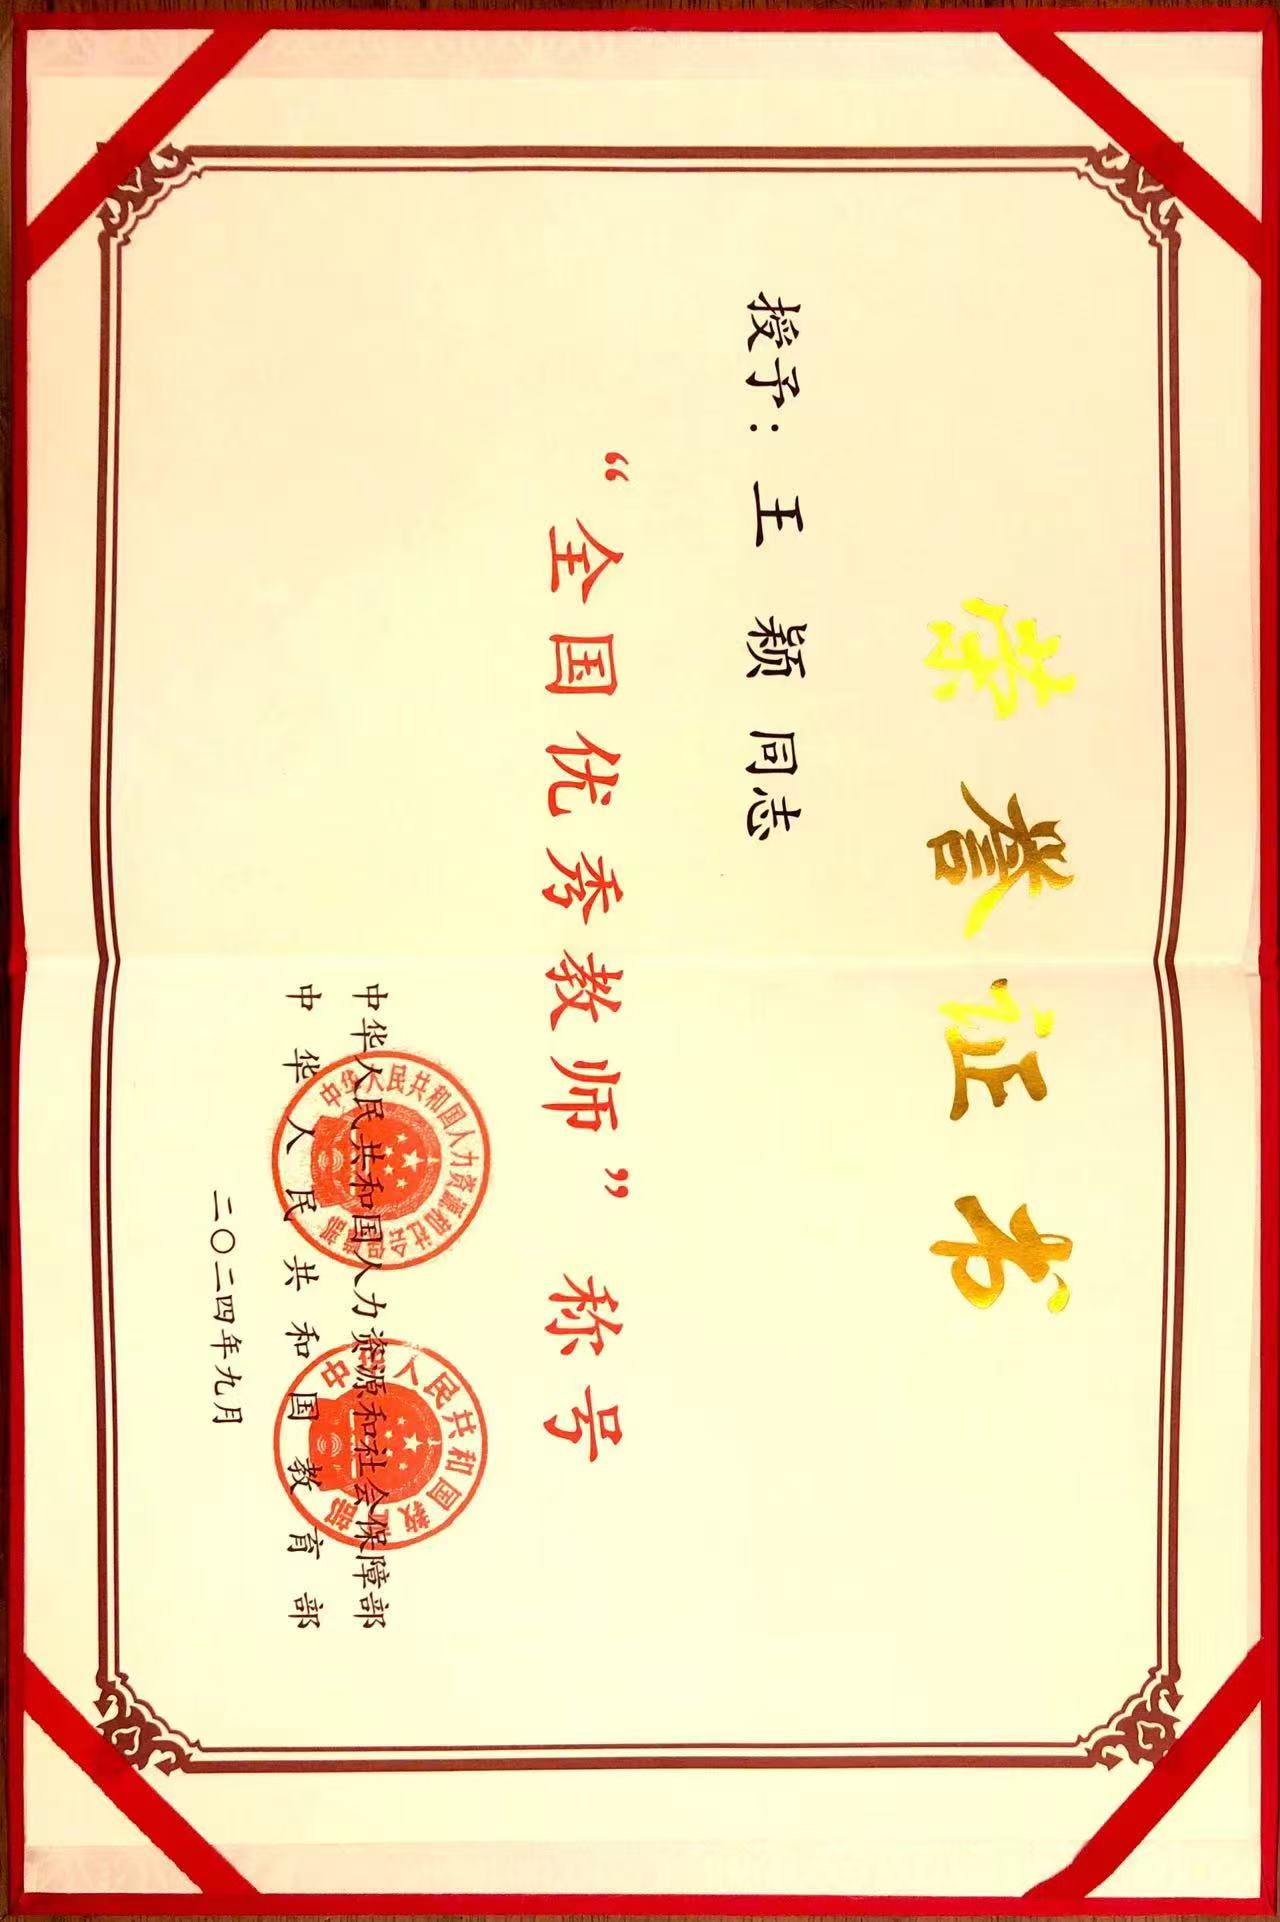 荣誉证书
授予：王 颖 同志
“全国优秀教师”称号
中华人民共和国人力资源和社会保障部
中华人民共和国教育部
二〇二四年九月
中华人民共和国人力资源和社会保障部
中华人民共和国教育部